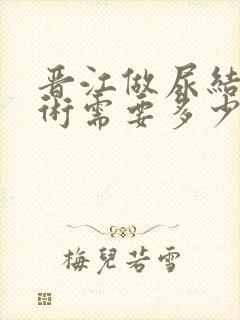 晋江做尿結
術需要多少
梅兒若雪